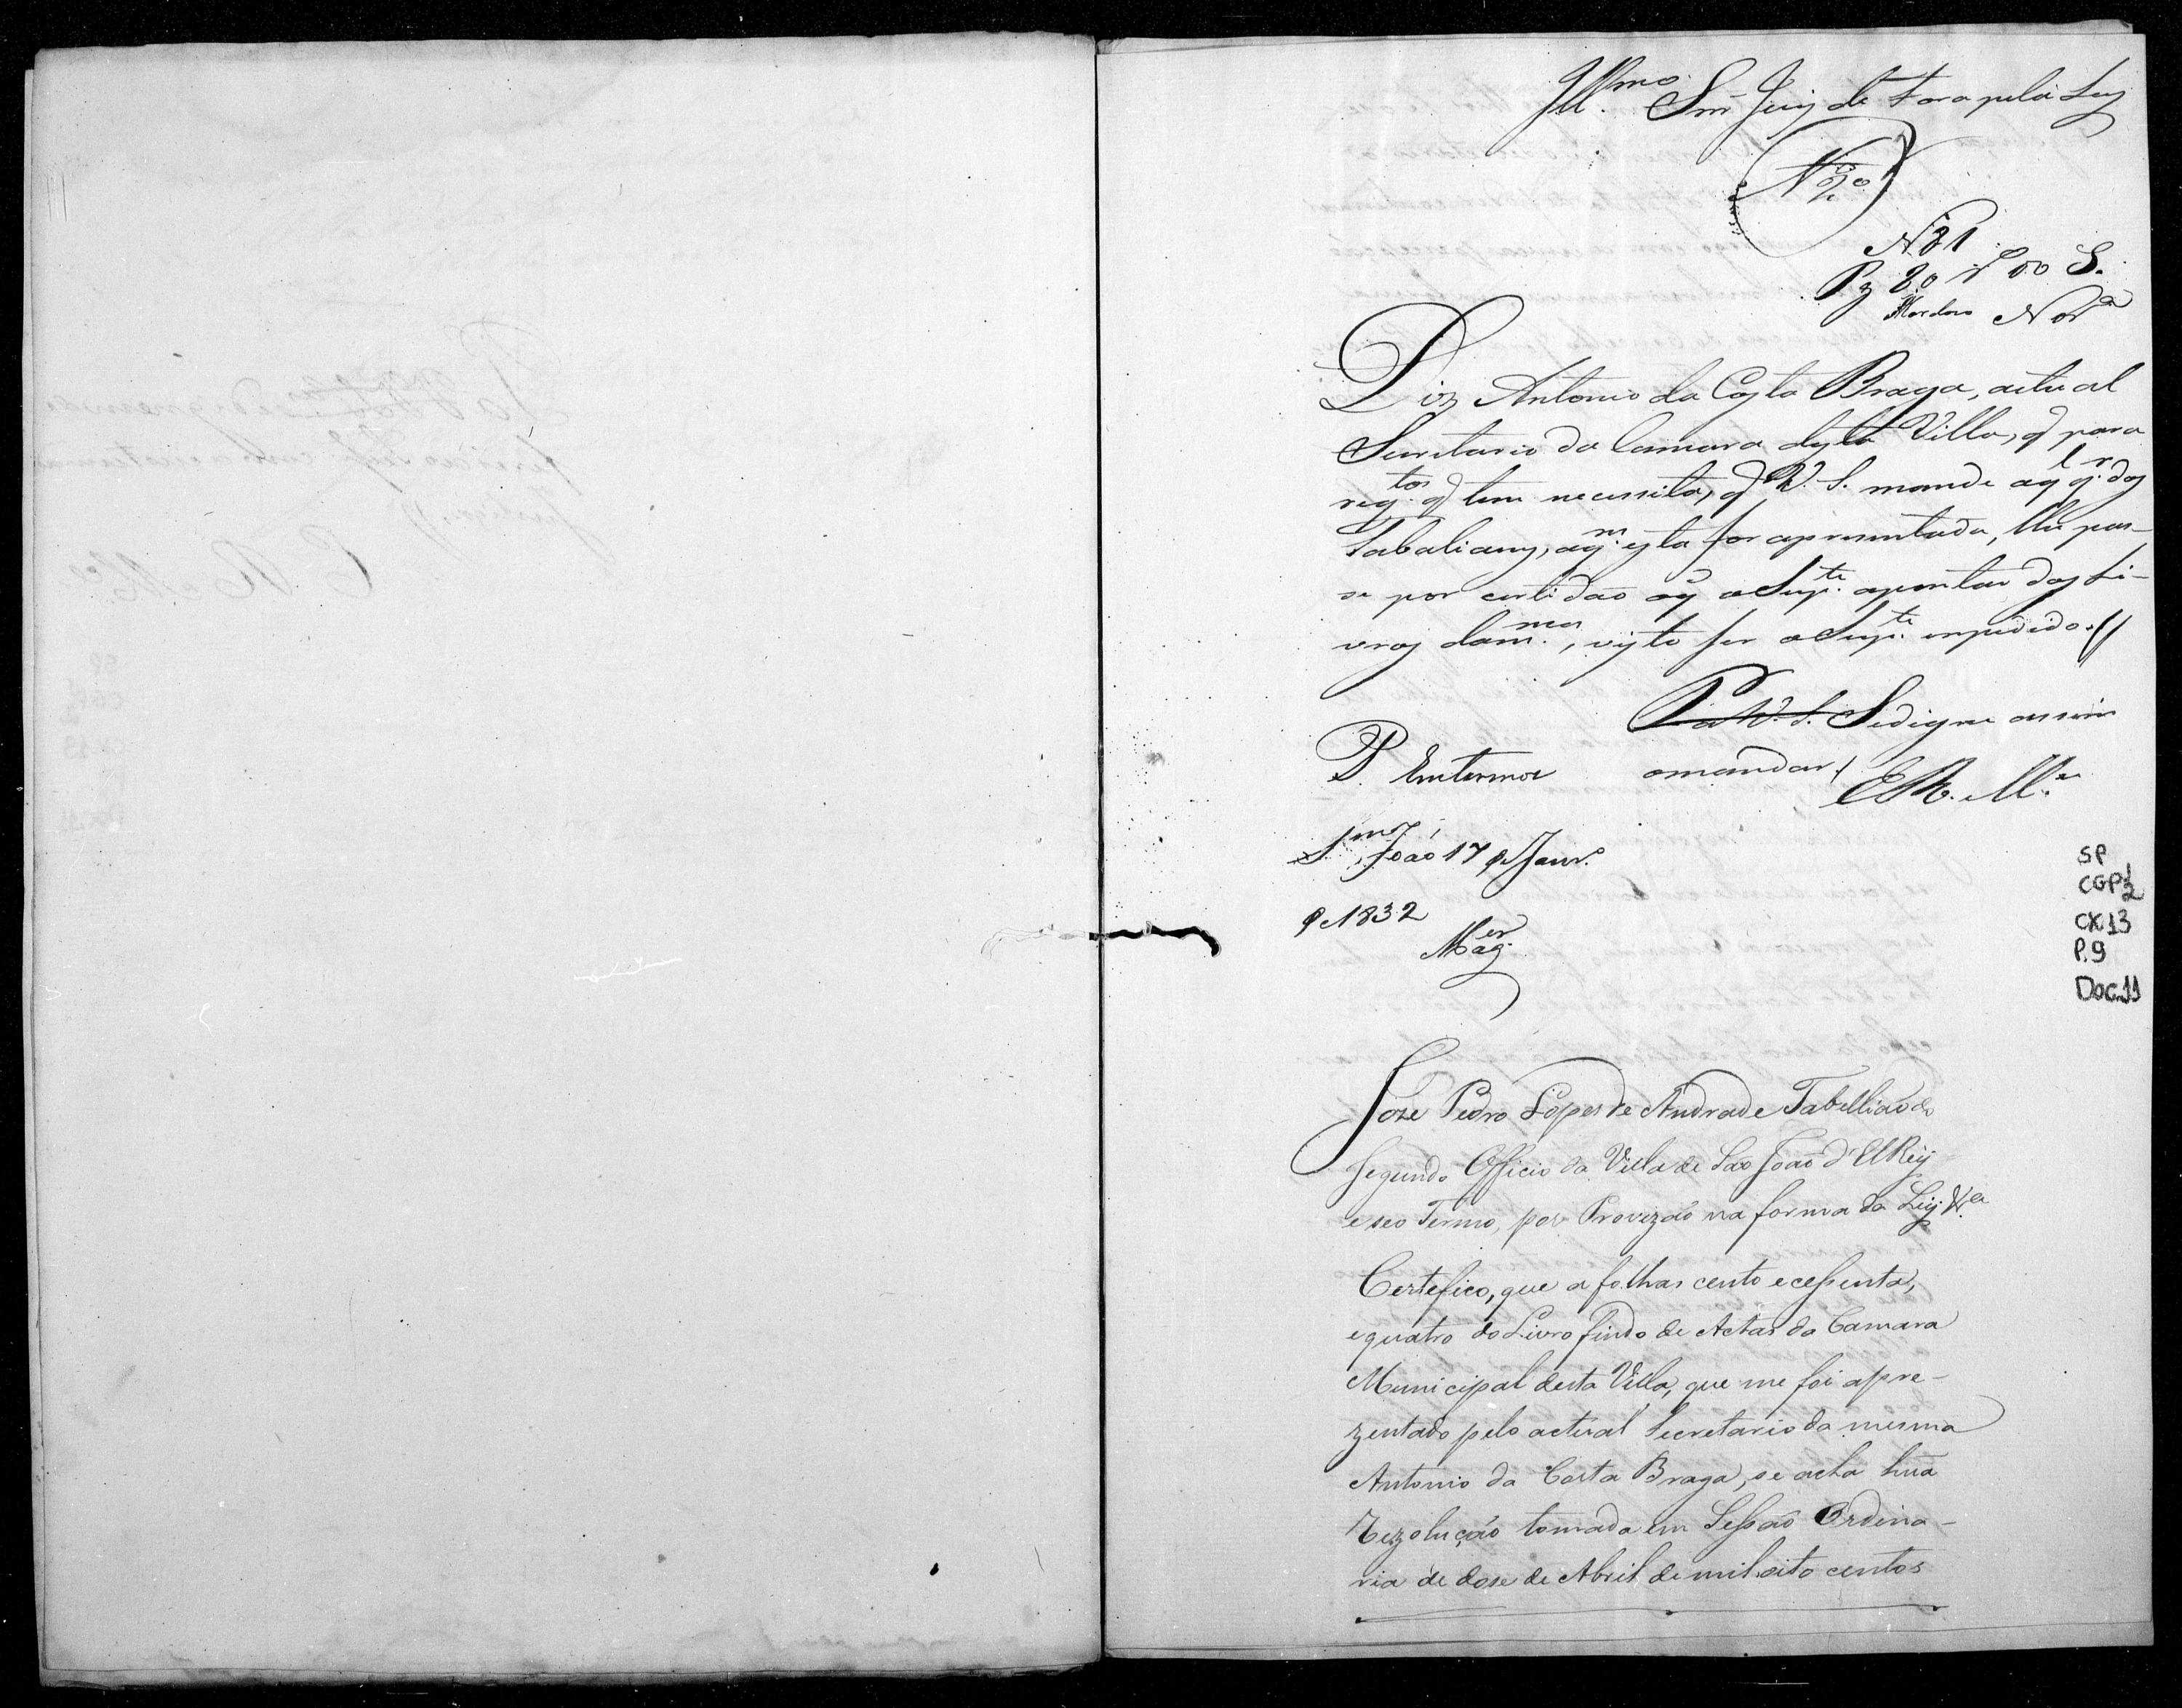 Ill.mo Snr Juiz de Fora pela Ley
N 2o
N 81
Pg 80 rs do S.
Nora
Diz Antonio da Costa Braga, actual
Secretario da Camara desta Villa, q para
reqtos q tem necessita, q V. S. mande a qql qr dos
Tabalians, a qm esta for aprezentada, lhe pas-
se por certidão o q o Supte apontar dos Li-
vros da mma, visto ser o Supte impedido.//
P a V. S. Sedigne assim
omandar/
E R. Mce
P. Em termos
S. João 17 de Janro
de 1832
Mager
SP
CGP 1/2
CX 13
P. 9
Doc. 11
Joze Pedro Lopes de Andrade Tabellião do
Segundo Officio da Villa de São João d'El Rey
e seo Termo, por Provizão na forma da Ley &a
Certefico, que a folhas cento e cessenta,
e quatro do Livro findo de Actas da Camara
Municipal desta Villa, que me foi apre-
zentado pelo actual Secretario da mesma
Antonio da Costa Braga, se acha hua
Rezolução tomada em Sessão Ordina-
ria de dose de Abril de mil oito centos